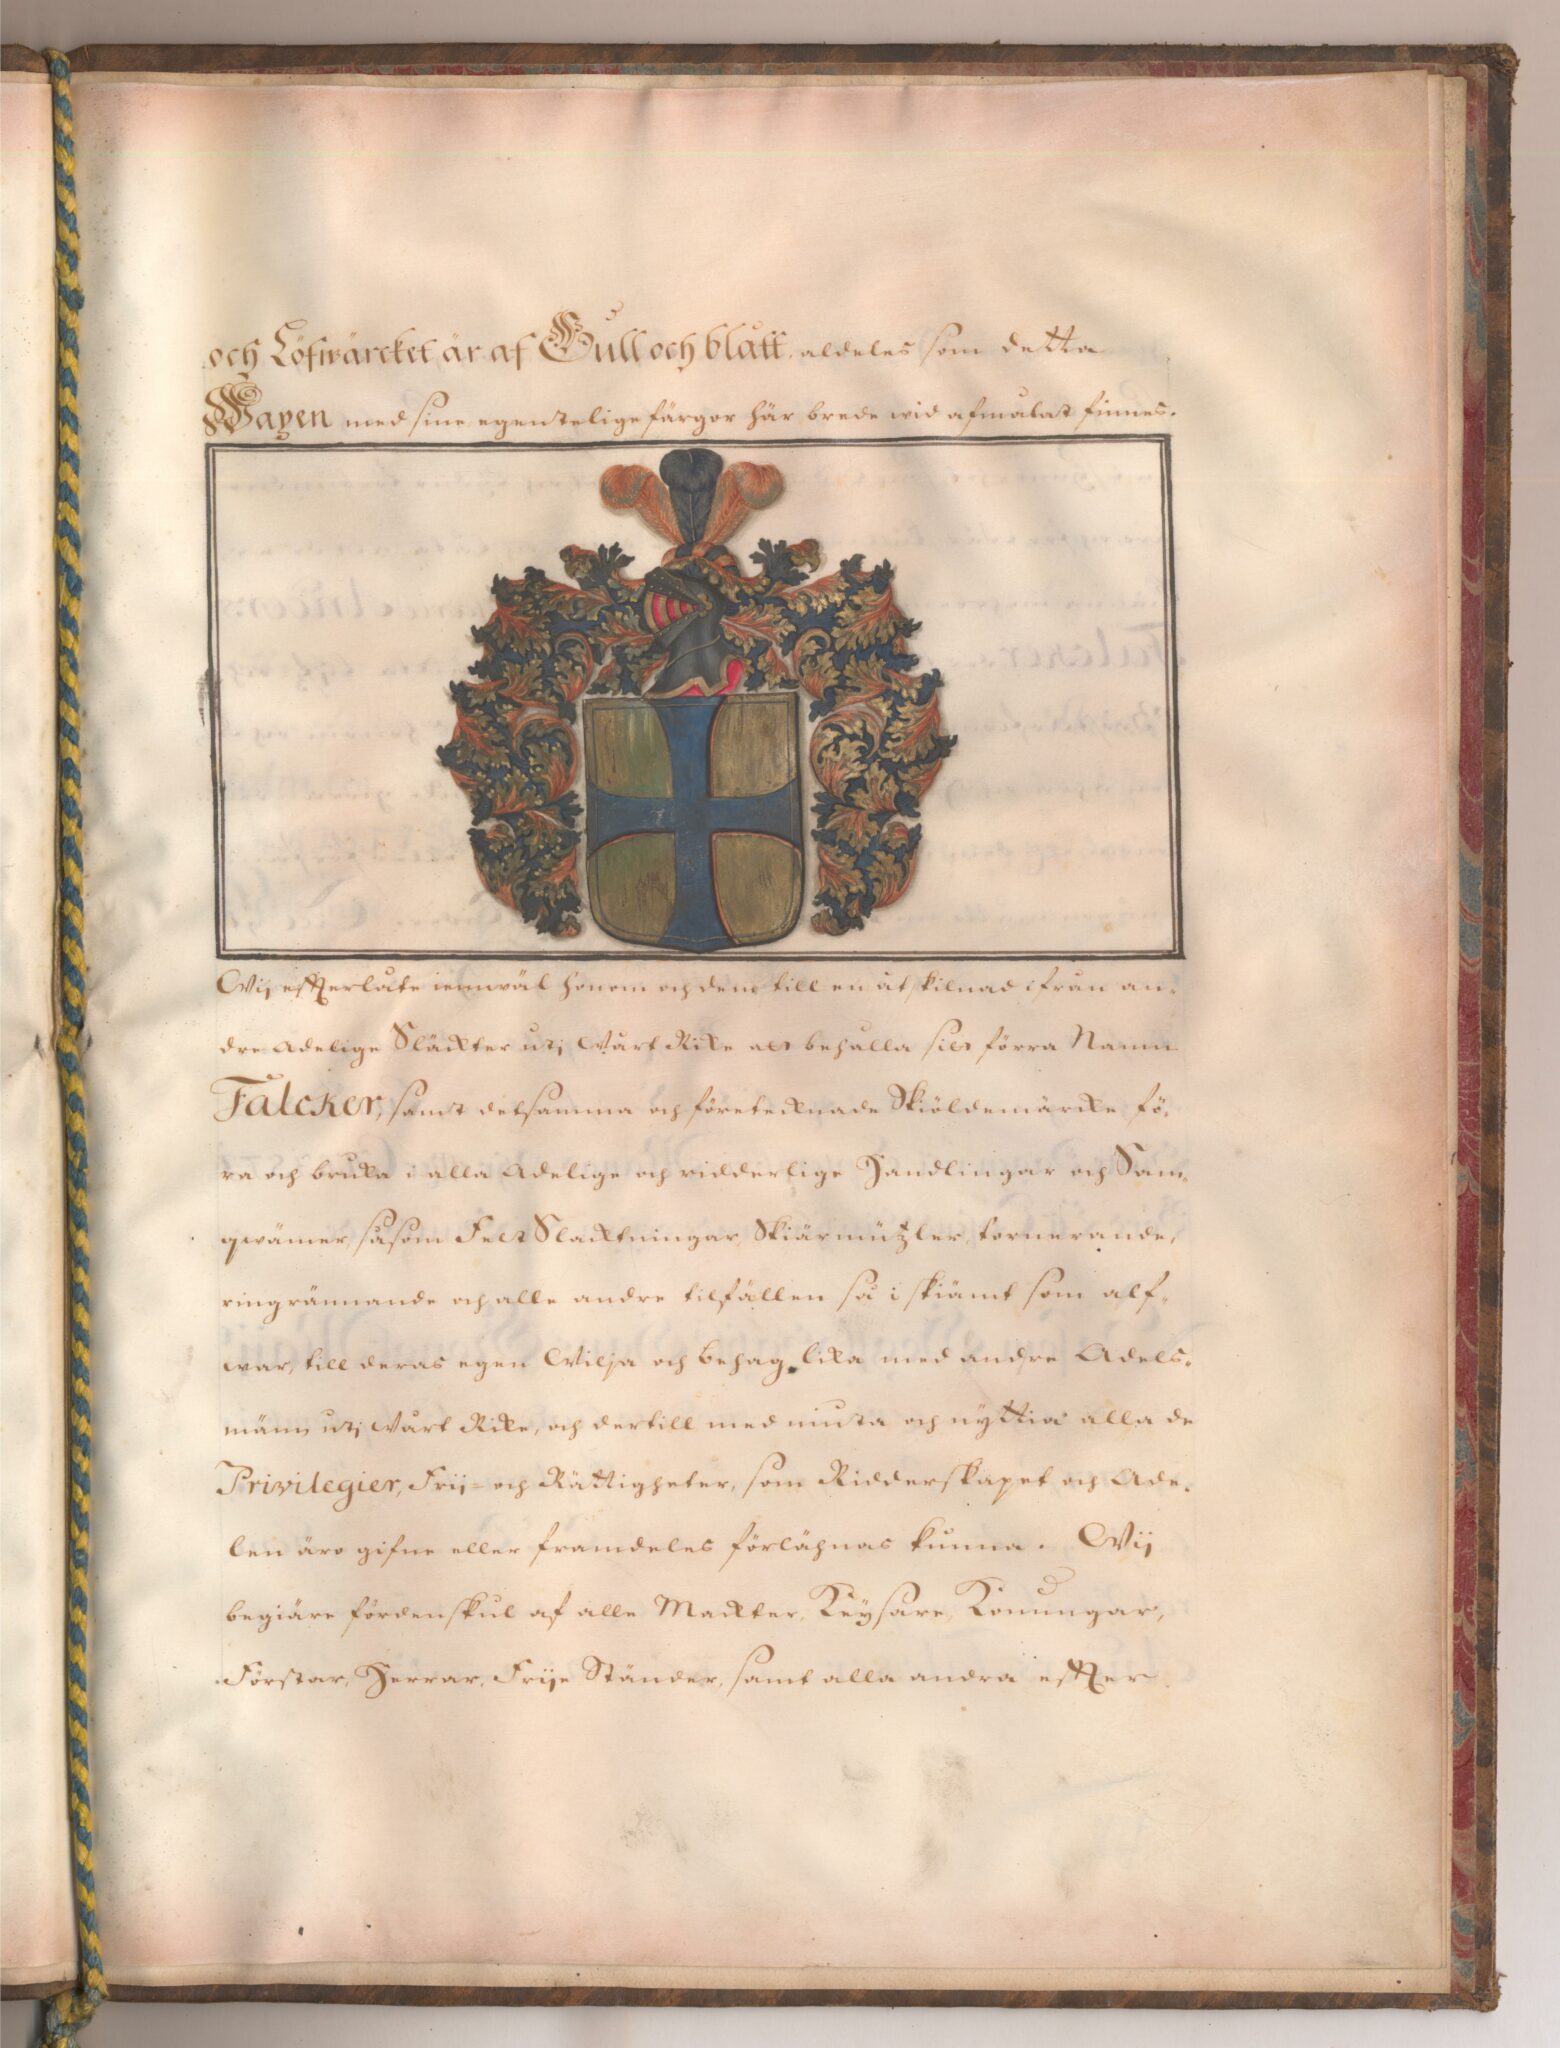 och Löfwärcket, är af Gull och blått, aldeles som detta
Wapen med sine egentelige färgor här brede wid afmålat finnes.
Wij efterlåte iemwäl honom och dem till en åtskilnad ifrån an-
dre Adelige Släckter utj Wårt Rike att behålla sitt förra Namn
Falcker, samt detsamma och företecknade Skiöldemärcke fö-
ra och bruka i alla Adelige och ridderlige Handlingar och Sam-
qwämer, såsom Felt Slacktningar, Skiärmützler, tornerande,
ringrännande och alle andre tilfällen så i skiämt som alf-
war, till deras egen Wilja och behag, lika med andre Adels-
männ utj Wårt Rike, och dertill med niuta och nyttia alla de
Privilegier, Frij- och Rättigheter, som Ridderskapet och Ade-
len äro gifne eller framdeles förlähnas kunna. Wij
begiäre fördenskul af alle Mackter, Keysare, Konungar,
Förstar, Herrar, Frije Ständer, samt alla andra efter